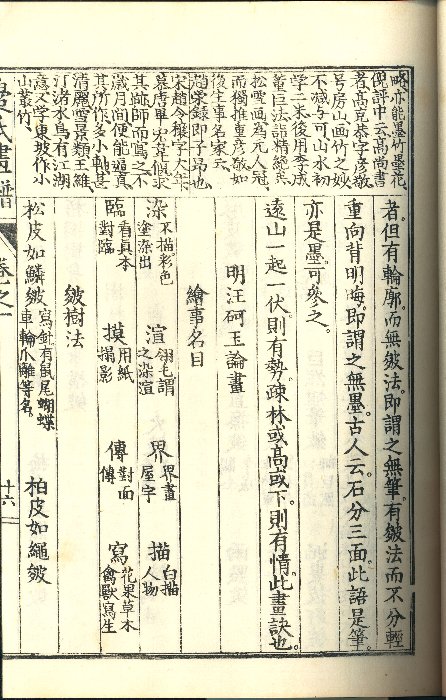 略亦能墨竹墨花
倪評中云高尚書
者高克恭字彥敬
号房山画竹之妙
不減与可山水初
学二米後用李成
董巨法語精絕兵
松雪画為元人冠
而獨推重彥敬如
後生事名家云
宋趙令穰字大年
其師而寫之不
歲月間便能逼真
其所作多小軸甚
清麗雪景類王維
汀渚水鳥有江湖
意又学東坡作小
山叢竹
者但有輪廓而無皴法即謂之無筆有皴法而不分輕
重向背明晦即謂之無墨古人云石分三面此語是筆
亦是墨可參之
遠山一起一伏則有勢疎林或高或下則有情此畫訣也
明汪砢玉論畫
繪事名目
染 不描彩色塗染出 渲 翎毛謂之染渲 界 界畫屋宇 描 白描人物
臨 看真本對臨 摸 用紙搨影 傳 對面傳 寫 花果草木禽獸寫生
皴樹法
松皮如鱗皴 寫針有鼠尾蝴蝶車輪爪離等名 柏皮如繩皴
畫譜
卷之一
十六